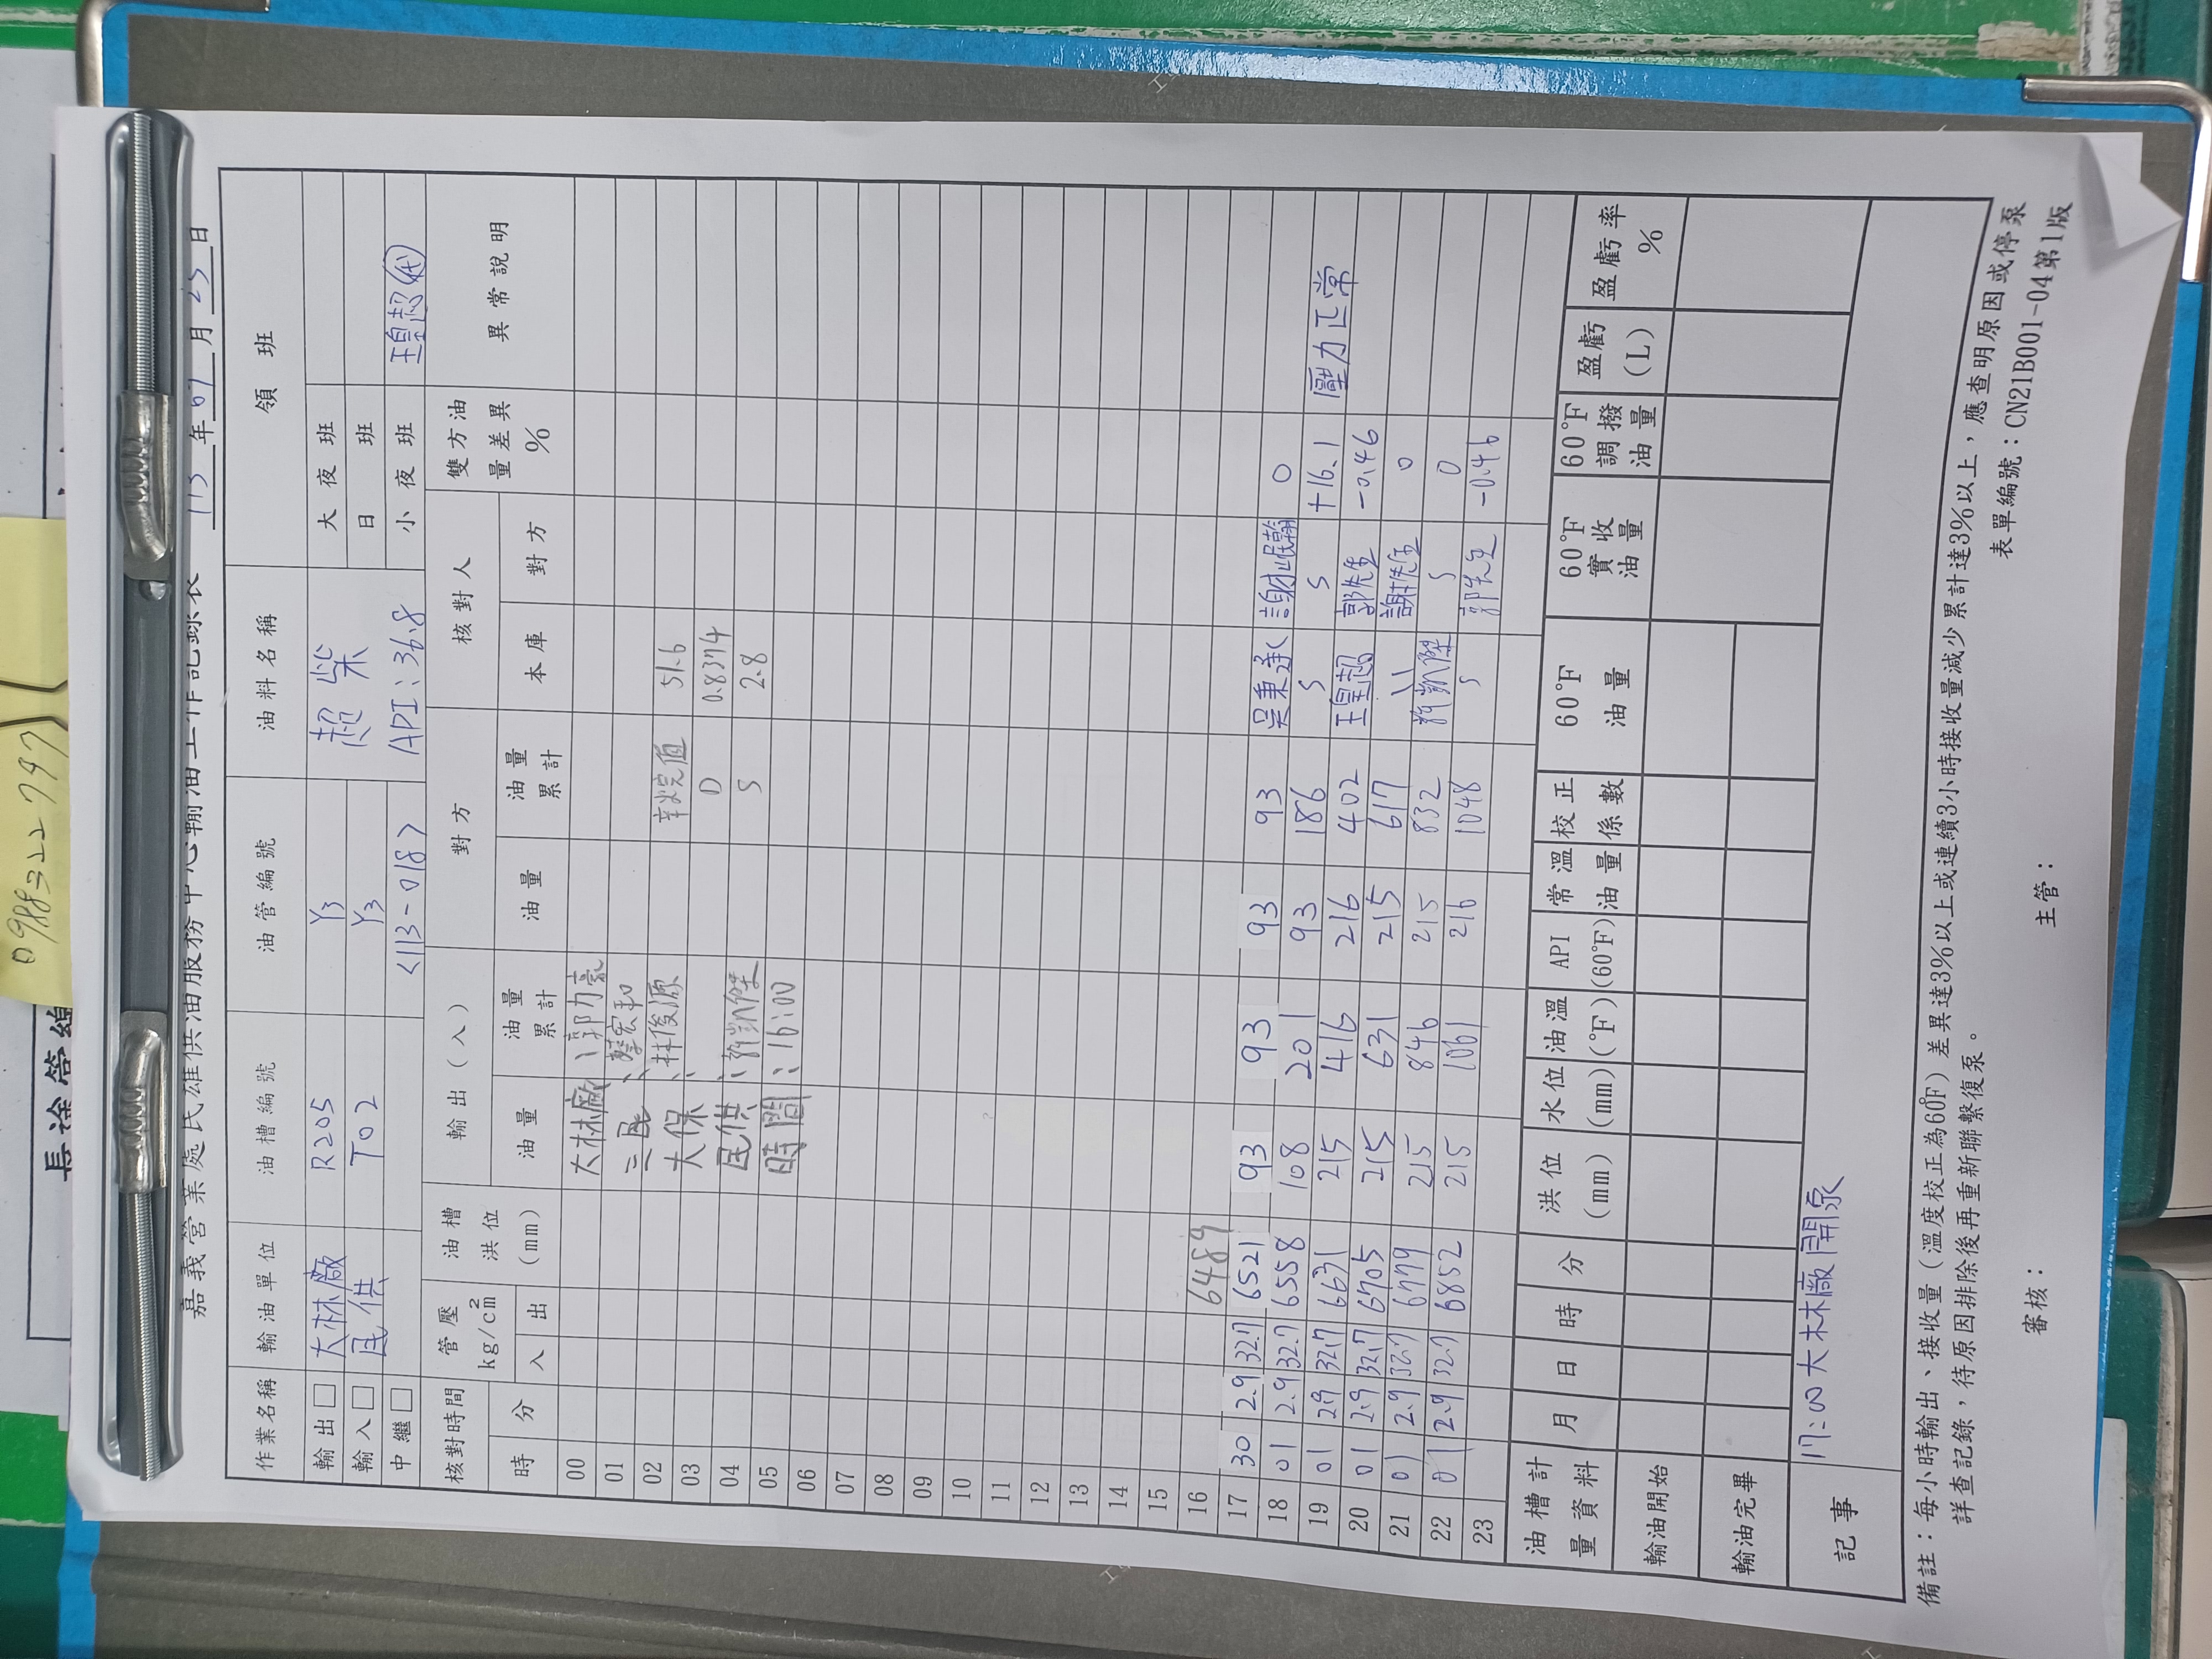 0988322797
長途管線
嘉義營業處民雄供油服務中心輸油工作記錄表 113年07月25日
作業名稱 輸油單位 油槽編號 油管編號 油料名稱 領班
輸出□ 大林廠 R205 Y3 超柴 大夜班
輸入□ 民供 T02 Y3 日班
中繼□ <113-018> API:36.8 小夜班 王皇超 代
核對時間 管壓 kg/cm² 油槽洪位(mm) 輸出(入) 對方 核對人 雙方油量差異% 異常說明
時 分 入 出 油量 油量累計 油量 油量累計 本庫 對方
00 大林廠:郭力豪
01 三民:蔡宏和
02 大保:林俊源 辛烷值 51.6
03 D 0.8374
04 民供:許凱傑 S 2.8
05 時間:16:00
06
07
08
09
10
11
12
13
14
15
16 6489
17 30 2.9 32.7 6521 93 93 93 93 吳秉承 謝岷翰 0
18 01 2.9 32.7 6558 108 201 93 186 S S +16.1 壓力正常
19 01 2.9 32.7 6631 215 416 216 402 王皇超 郭先生 -0.46
20 01 2.9 32.7 6705 215 631 215 617 〃 謝先生 0
21 01 2.9 32.7 6779 215 846 215 832 許凱傑 S 0
22 01 2.9 32.7 6852 215 1061 216 1048 S 郭先生 -0.46
23
油槽計量資料 月 日 時 分 洪位(mm) 水位(mm) 油溫(°F) API(60°F) 常溫油量 校正係數 60°F油量 60°F實收油量 60°F調撥油量 盈虧(L) 盈虧率%
輸油開始
輸油完畢
記事 17:00大林廠開泵
備註：每小時輸出、接收量（溫度校正為60°F）差異達3%以上或連續3小時接收量減少累計達3%以上，應查明原因或停泵
詳查記錄，待原因排除後再重新聯繫復泵。
表單編號：CN21B001-04第1版
審核： 主管：